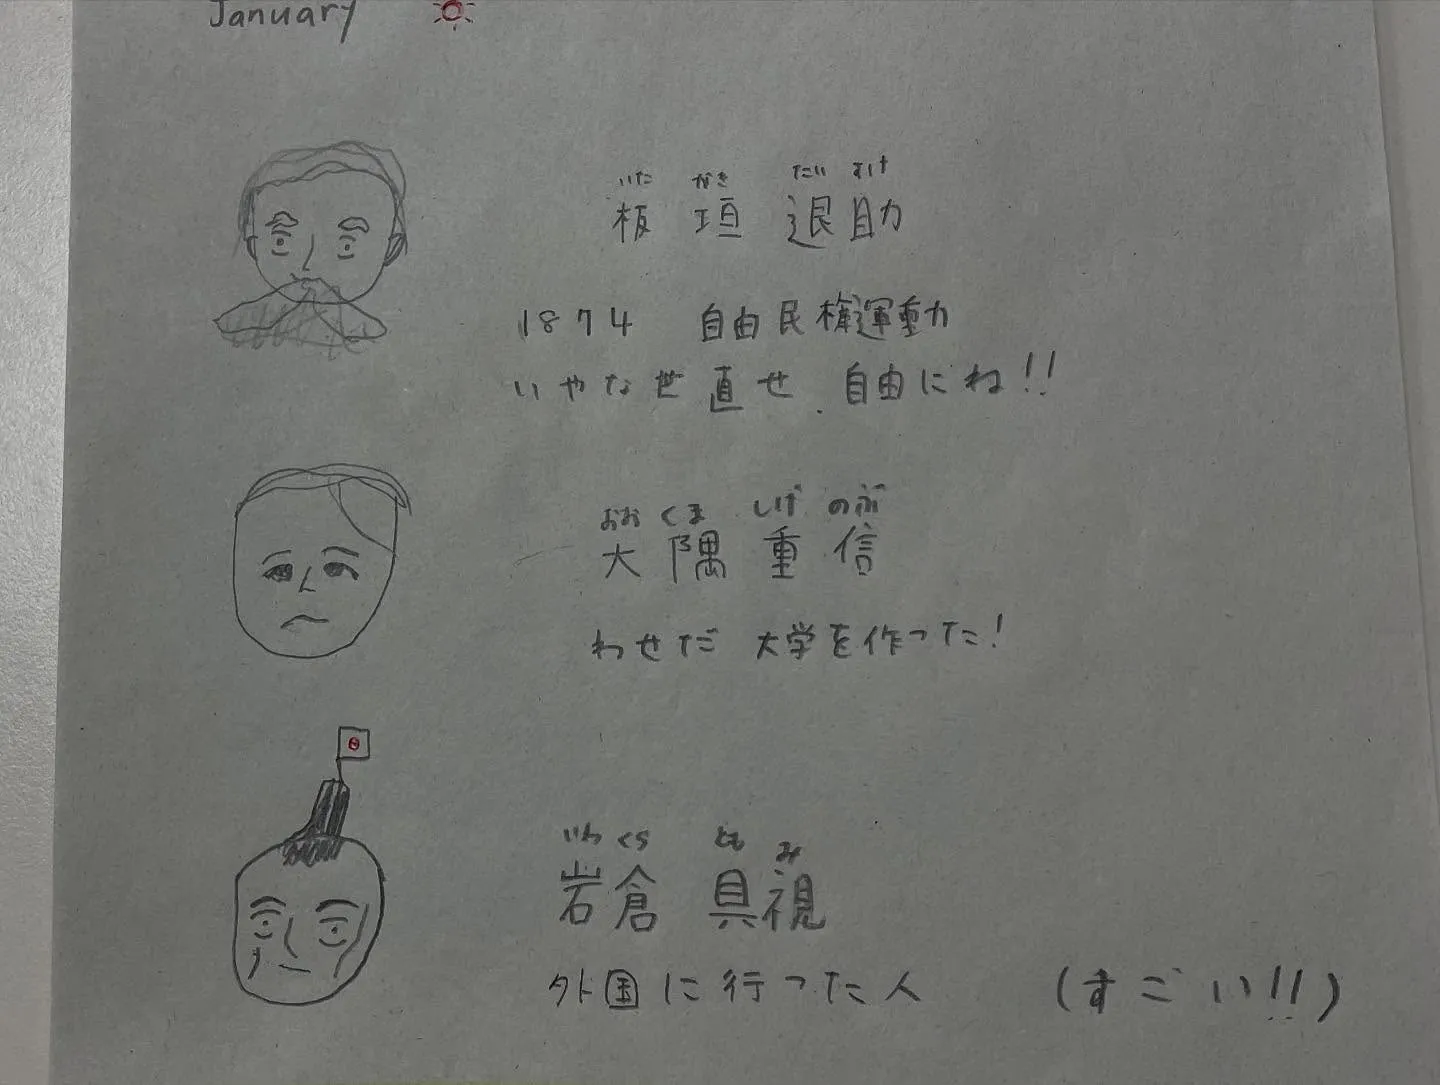 January
いた がき だい すけ
板垣 退助
1874 自由民権運動
いやな世直せ、自由にね!!
おお くま しげ のぶ
大隈 重信
わせだ 大学を作った!
いわ くら とも み
岩倉 具視
外国に行った人 (すごい!!)